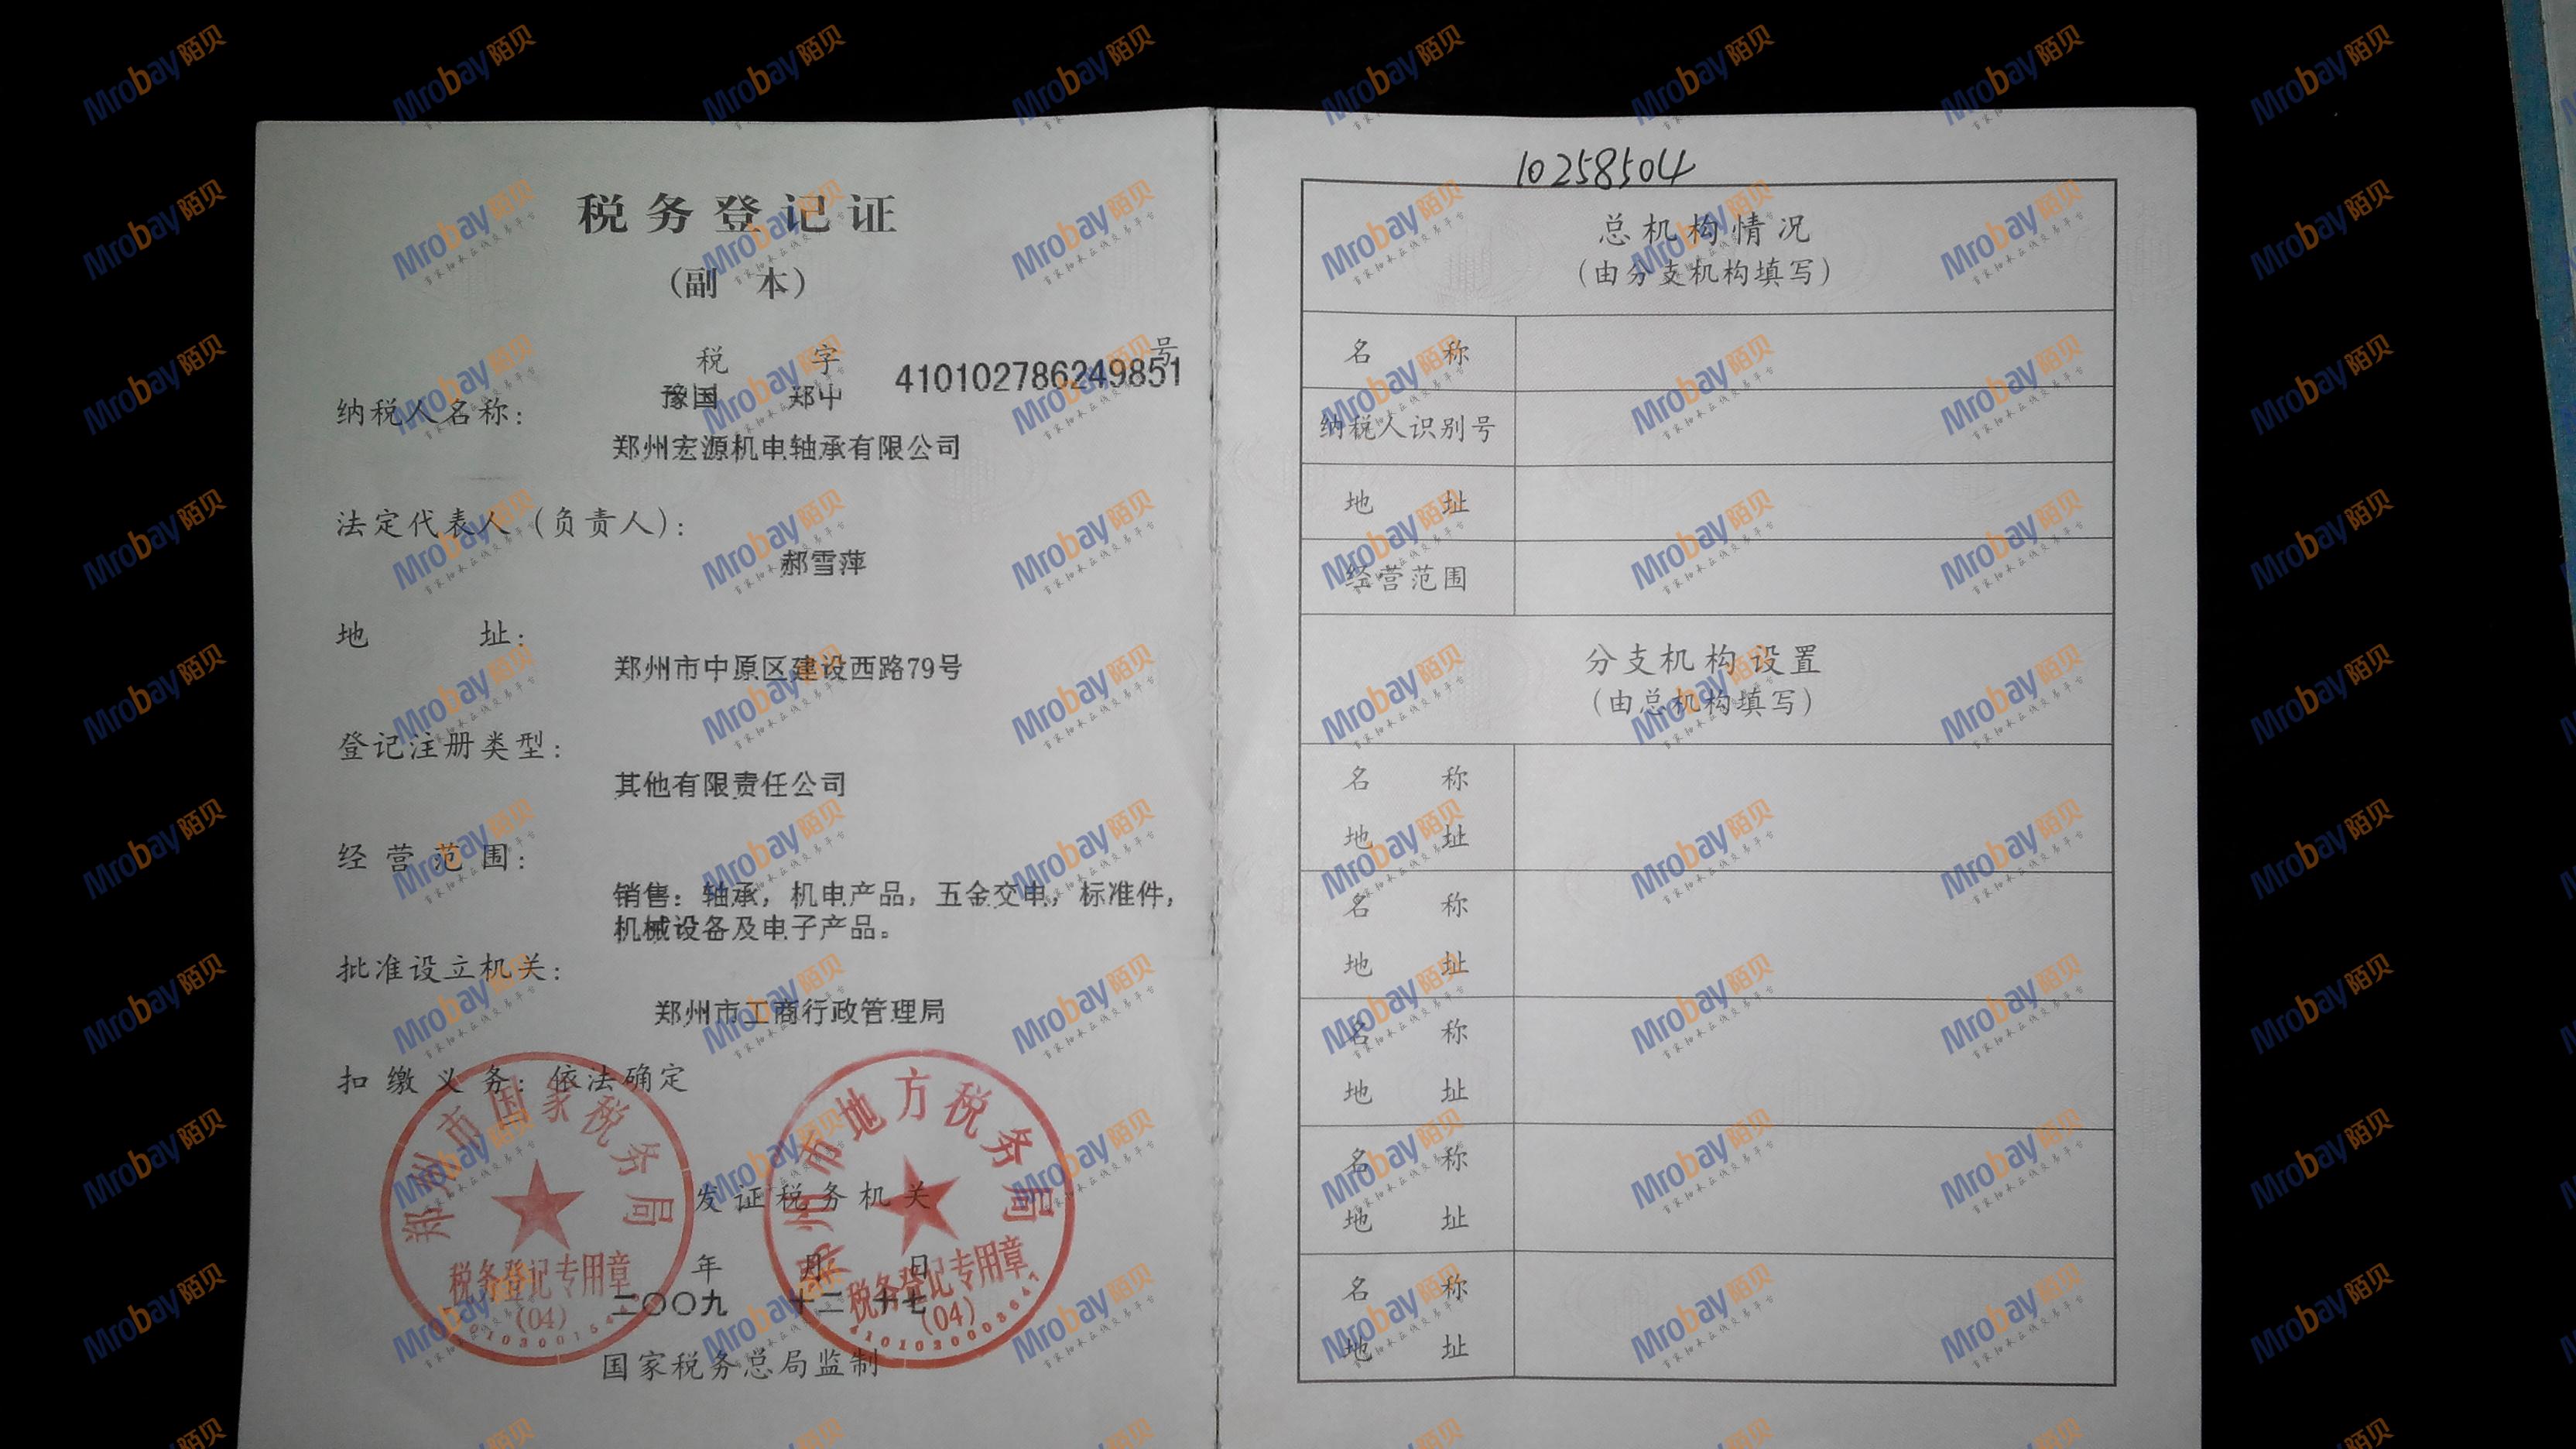 税务登记证
(副 本)
税 字 号
豫国 郑中 410102786249851
纳税人名称:
郑州宏源机电轴承有限公司
法定代表人（负责人）:
郝雪萍
地 址:
郑州市中原区建设西路79号
登记注册类型:
其他有限责任公司
经营范围:
销售：轴承，机电产品，五金交电，标准件，
机械设备及电子产品。
批准设立机关:
郑州市工商行政管理局
扣缴义务: 依法确定
郑州市国家税务局
税务登记专用章
(04)
郑州市地方税务局
税务登记专用章
(04)
发证税务机关
年 月 日
二〇〇九 十二 十七
国家税务总局监制
10258504
总机构情况
（由分支机构填写）
名 称
纳税人识别号
地 址
经营范围
分支机构设置
（由总机构填写）
名 称
地 址
名 称
地 址
名 称
地 址
名 称
地 址
名 称
地 址
Mrobay陌贝